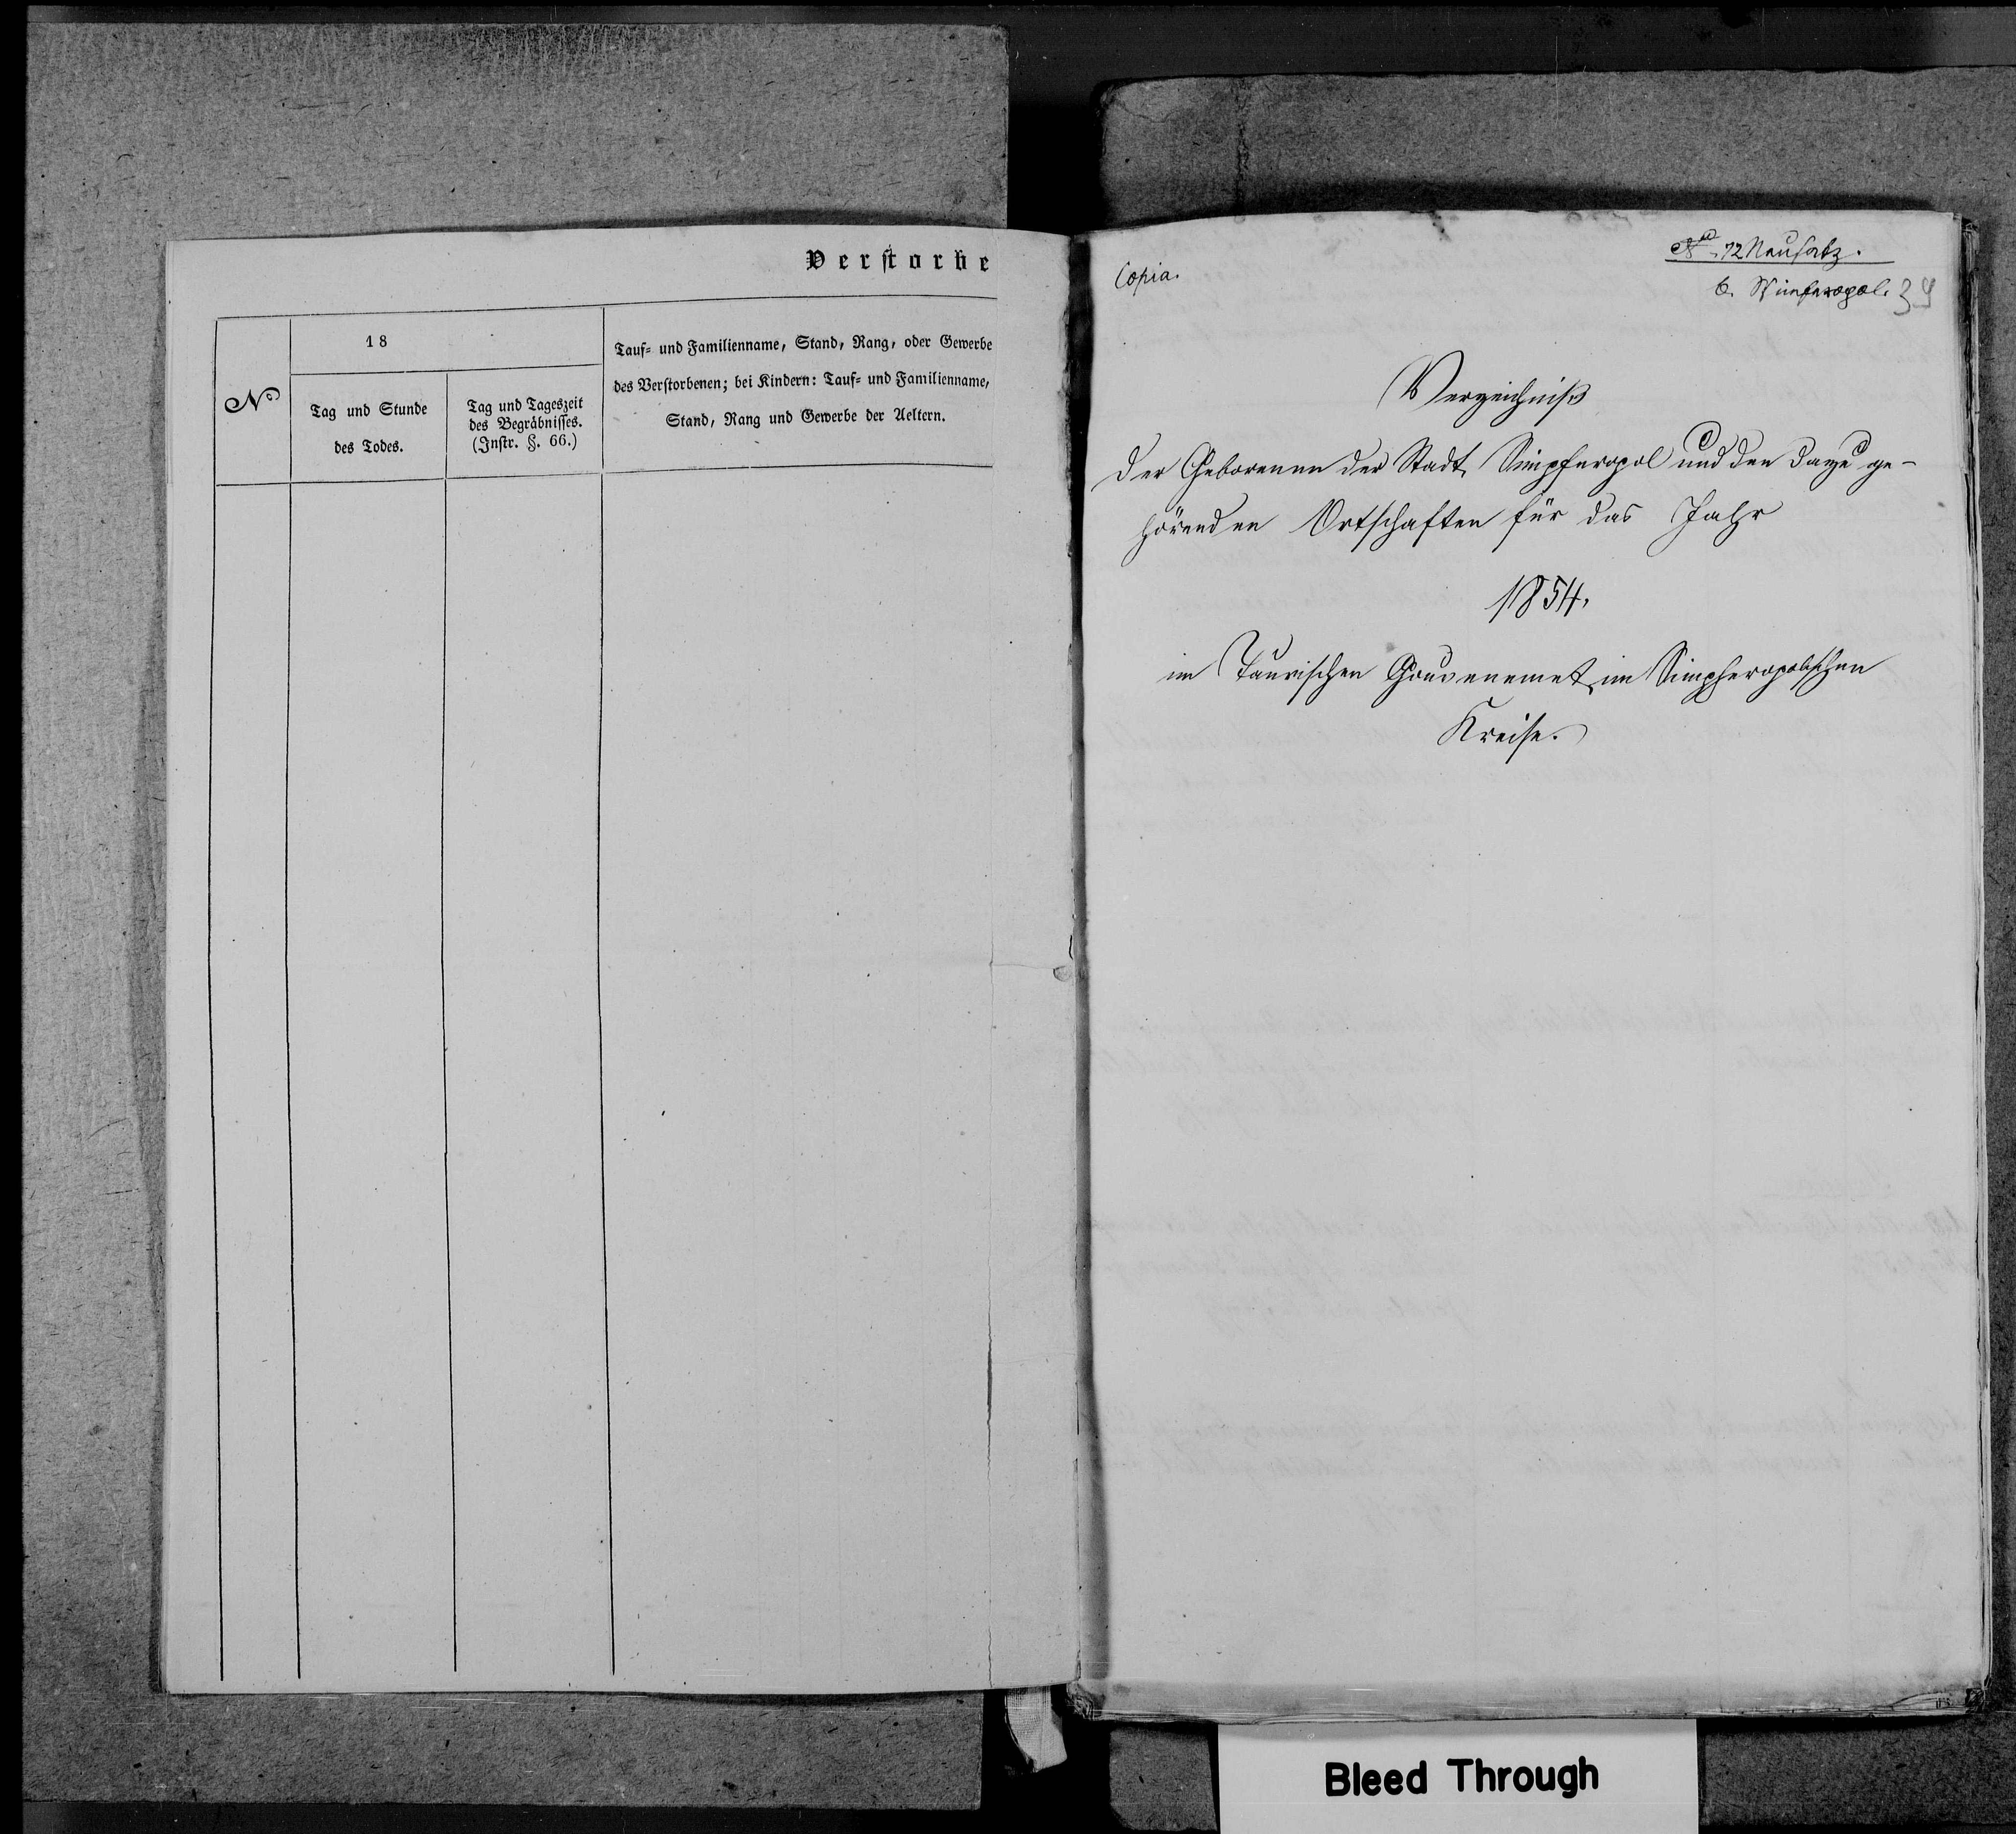 Verstorbe
N°
18
Tag und Stunde
des Todes.
Tag und Tageszeit
des Begräbnisses.
(Instr. §. 66.)
Tauf= und Familienname, Stand, Rang, oder Gewerbe
des Verstorbenen; bei Kindern: Tauf= und Familienname,
Stand, Rang und Gewerbe der Aeltern.
Copia.
No. 12 Neusatz.
6. Simferopol. 39
Verzeichniß
der Geborenen der Stadt Simpferopol und den dazu ge-
hörenden Ortschaften für das Jahr
1854.
im Taurischen Gouvenemet, im Simpheropolschen
Kreise.
Bleed Through